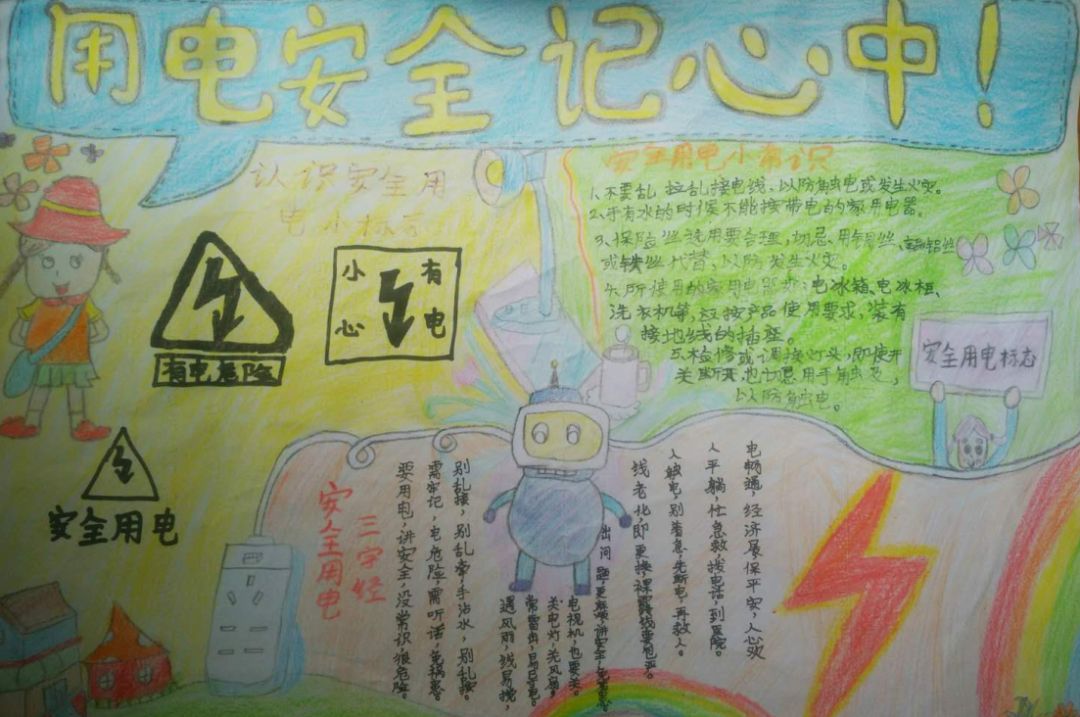 用电安全记心中！
认识安全用
电小标志
小心有电
有电危险
安全用电
安全用电小常识
1.不要乱拉乱接电线、以防触电或发生火灾。
2.手有水的时候不能接带电的家用电器。
3.保险丝选用要合理，切忌用铜丝、铝丝
或铁丝代替、以防发生火灾。
4.所使用的家用电器如：电冰箱、电冰柜、
洗衣机等，应按产品使用要求，装有
接地线的插座。
5.检修或调换灯头，即使开
关断开，也切忌用手触及，
以防触电。
安全用电标志
三字经
安全用电
要用电，讲安全，没常识，很危险。
需牢记，电危险，需听话，免祸患。
别乱接，别乱牵，手沾水，别乱按。
遇风雨，线易搅，
常雷击，易
关电灯，关风扇。
电视机，也要关。
出问题，更麻烦，讲安全
线老化，即更换，裸露线，要包严。
人触电，别着急，先断电，再救人。
人平躺，忙急救，拨电话，到医院。
电畅通，经济展，保平安，人心欢